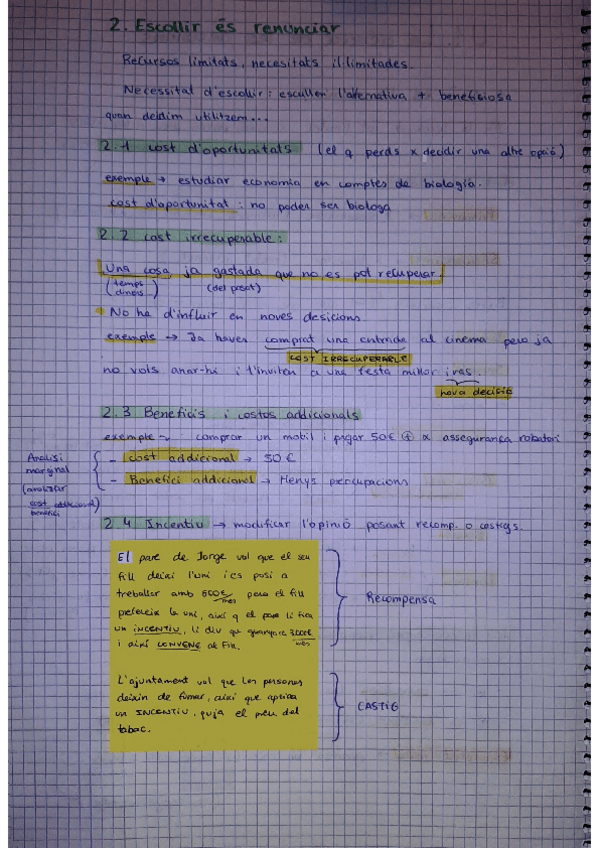 2. Escollir és renunciar
Recursos limitats, necesitats il·limitades.
Necessitat d'escollir: escullen l'alternativa + beneficiosa
quan deidim utilitzem...
2.1 cost d'oportunitats (el q perds x decidir una altre opció)
exemple → estudiar economia en comptes de biologia.
cost d'oportunitat: no poder ser biologa
2.2 cost irrecuperable:
Una cosa ja gastada que no es pot recuperar
(temps diners) (del passat)
No ha d'influir en noves desicions.
exemple → Ja haver comprat una entrada al cinema pero ja
COST IRRECUPERABLE
no vols anar-hi i t'inviten a una festa millor iras.
nova decisió
2.3 Beneficis i costos addicionals
exemple: comprar un mobil i pagar 50€ + x assegurança robatori
Analisi marginal (analitzar cost addicional / benefici)
- cost addicional → 50€
- Benefici addicional → Menys preocupacions
2.4 Incentiu → modificar l'opinió posant recomp. o castigs.
El pare de Jorge vol que el seu
fill deixi l'uni i es posi a
treballar amb ell pero el fill
prefereix la uni, així q el pare li fica
un INCENTIU, li diu que guanyara 3000€/mes
i així CONVENÇ al fill.
Recompensa
L'ajuntament vol que les persones
deixin de fumar, així que aplica
un INCENTIU, puja el preu del
tabac.
CASTIG